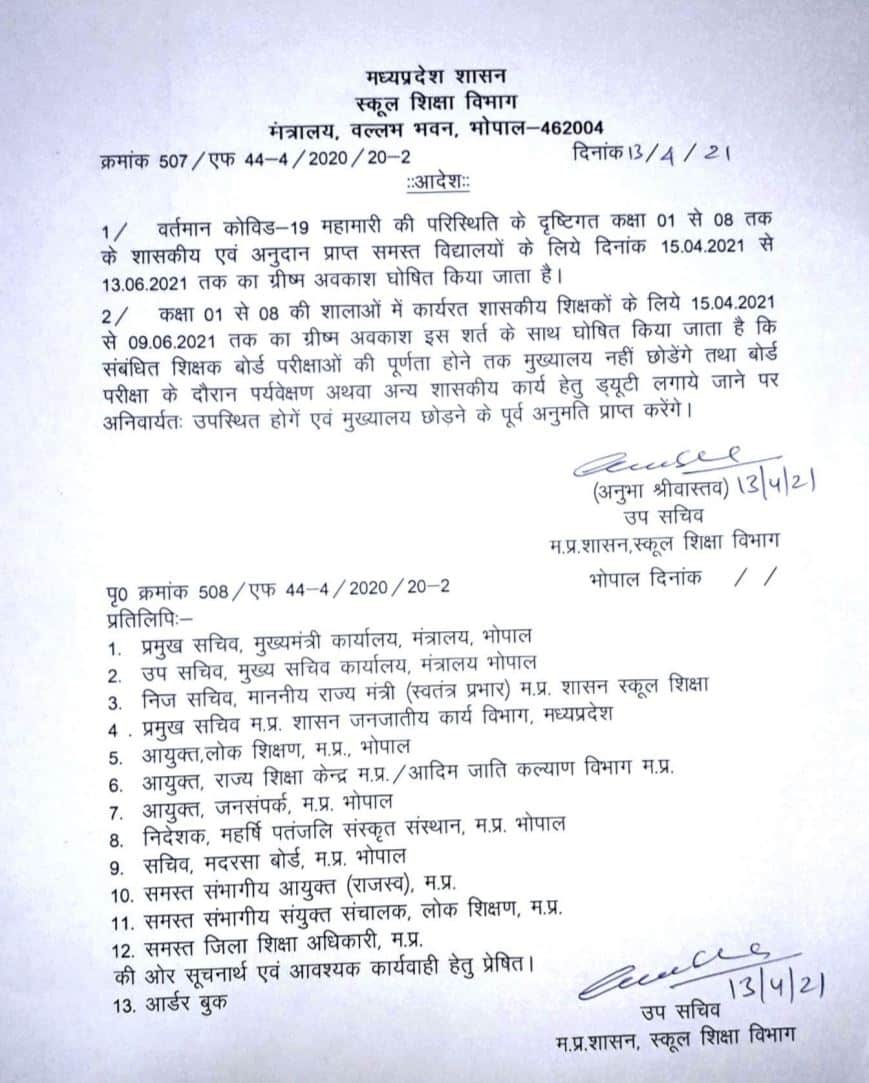 मध्यप्रदेश शासन
स्कूल शिक्षा विभाग
मंत्रालय, वल्लभ भवन, भोपाल–462004
क्रमांक 507/एफ 44–4/2020/20–2 दिनांक 13/4/21
::आदेश::
1/ वर्तमान कोविड–19 महामारी की परिस्थिति के दृष्टिगत कक्षा 01 से 08 तक
के शासकीय एवं अनुदान प्राप्त समस्त विद्यालयों के लिये दिनांक 15.04.2021 से
13.06.2021 तक का ग्रीष्म अवकाश घोषित किया जाता है।
2/ कक्षा 01 से 08 की शालाओं में कार्यरत शासकीय शिक्षकों के लिये 15.04.2021
से 09.06.2021 तक का ग्रीष्म अवकाश इस शर्त के साथ घोषित किया जाता है कि
संबंधित शिक्षक बोर्ड परीक्षाओं की पूर्णता होने तक मुख्यालय नहीं छोडेंगे तथा बोर्ड
परीक्षा के दौरान पर्यवेक्षण अथवा अन्य शासकीय कार्य हेतु ड्यूटी लगाये जाने पर
अनिवार्यतः उपस्थित होगें एवं मुख्यालय छोड़ने के पूर्व अनुमति प्राप्त करेंगे।
(अनुभा श्रीवास्तव) 13/4/21
उप सचिव
म.प्र.शासन,स्कूल शिक्षा विभाग
पृ0 क्रमांक 508/एफ 44–4/2020/20–2 भोपाल दिनांक / /
प्रतिलिपिः–
1. प्रमुख सचिव, मुख्यमंत्री कार्यालय, मंत्रालय, भोपाल
2. उप सचिव, मुख्य सचिव कार्यालय, मंत्रालय भोपाल
3. निज सचिव, माननीय राज्य मंत्री (स्वतंत्र प्रभार) म.प्र. शासन स्कूल शिक्षा
4 . प्रमुख सचिव म.प्र. शासन जनजातीय कार्य विभाग, मध्यप्रदेश
5. आयुक्त,लोक शिक्षण, म.प्र., भोपाल
6. आयुक्त, राज्य शिक्षा केन्द्र म.प्र./आदिम जाति कल्याण विभाग म.प्र.
7. आयुक्त, जनसंपर्क, म.प्र. भोपाल
8. निदेशक, महर्षि पतंजलि संस्कृत संस्थान, म.प्र. भोपाल
9. सचिव, मदरसा बोर्ड, म.प्र. भोपाल
10. समस्त संभागीय आयुक्त (राजस्व), म.प्र.
11. समस्त संभागीय संयुक्त संचालक, लोक शिक्षण, म.प्र.
12. समस्त जिला शिक्षा अधिकारी, म.प्र.
की ओर सूचनार्थ एवं आवश्यक कार्यवाही हेतु प्रेषित।
13. आर्डर बुक
13/4/21
उप सचिव
म.प्र.शासन, स्कूल शिक्षा विभाग